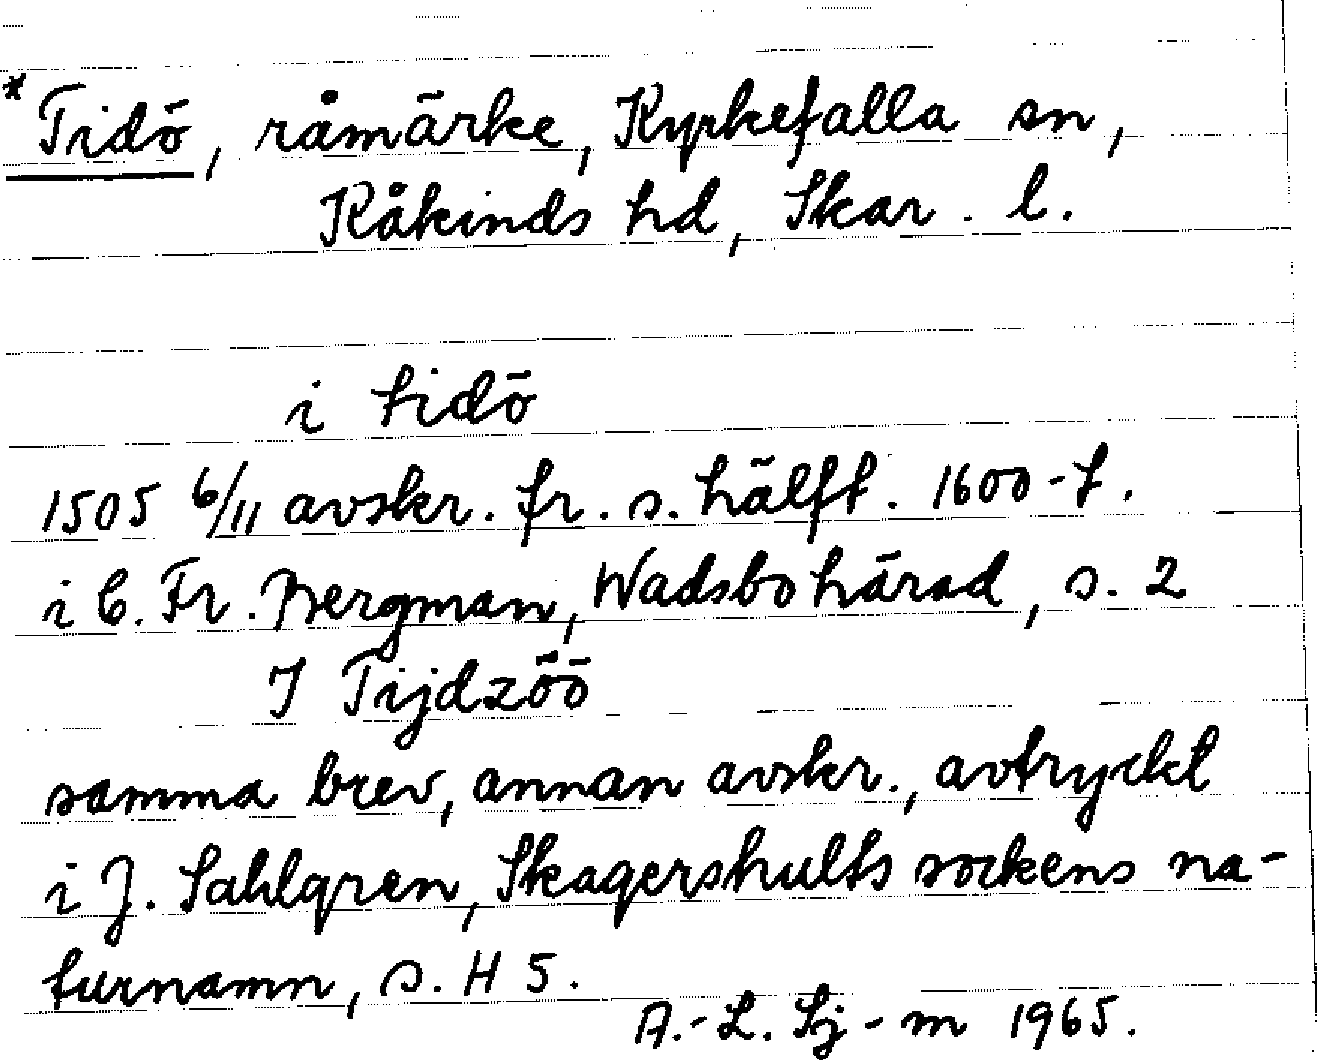 * Tidö, råmärke, Kyrkefalla sn,
Kåkinds hd, Skar. l.
i tidö
1505 6/11 avskr. fr. s. hälft. 1600-t.
i C. Fr. Bergman, Wadsbo härad, s. 2
I Tijdzöö
samma brev, annan avskr., avtryckt
i J. Sahlgren, Skagershults sockens na-
turnamn, s. H 5.
A.-L. Sj-m 1965.